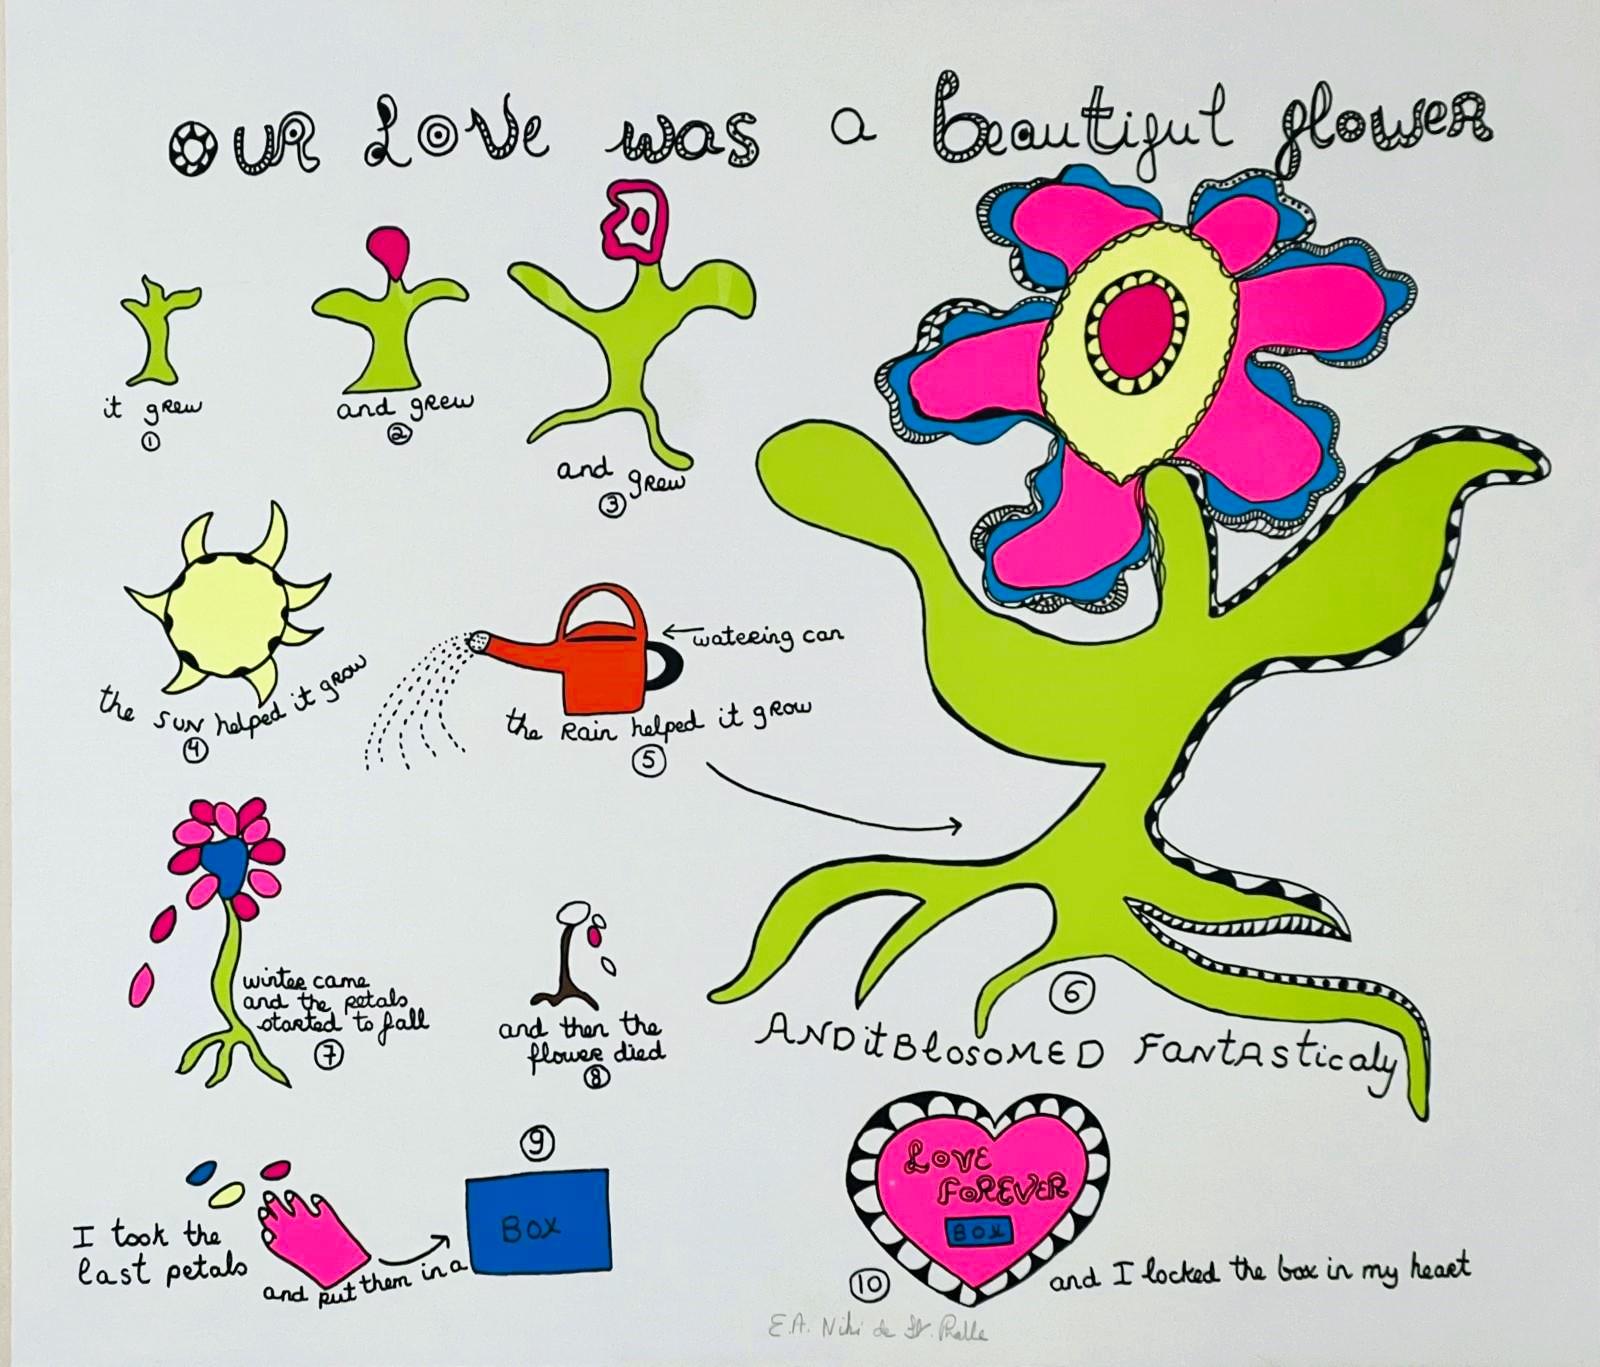 OUR LOVE was a beautiful flower
it gRew
1
and gRew
2
and gRew
3
the SUN helped it gRow
4
watering can
the Rain helped it gRow
5
ANDitBlosoMED FantAsticaly
6
winter came
and the petals
started to fall
7
and then the
flower died
8
9
I took the
last petals
and put them in a
Box
LOVE
FOREVER
BOX
10
and I locked the box in my heart
E.A. Niki de St. Phalle